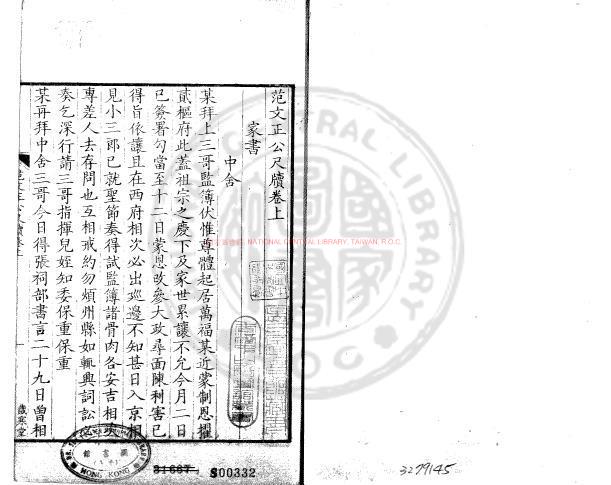 范文正公尺牘卷上
家書
中舍
某拜上三哥監簿伏惟尊體起居萬福某近蒙制恩擢
貳樞府此蓋祖宗之慶下及家世累讓不允今月二日
已簽署勾當至十二日蒙恩改參大政尋面陳利害已
得旨依讓且在西府相次必出巡邊不知甚日入京相
見小三郎已就聖節奏得試監簿諸骨肉各安吉相
專差人去存問也互相戒約勿煩州縣如輒興詞訟必
奏乞深行請三哥指揮兒姪知委保重保重
某再拜中舍三哥今日得張祠部書言二十九日曾相
歲寒堂
國家圖書館 NATIONAL CENTRAL LIBRARY, TAIWAN, R.O.C.
CENTRAL LIBRARY
R O C
HONG KONG
31667
S00332
3279145